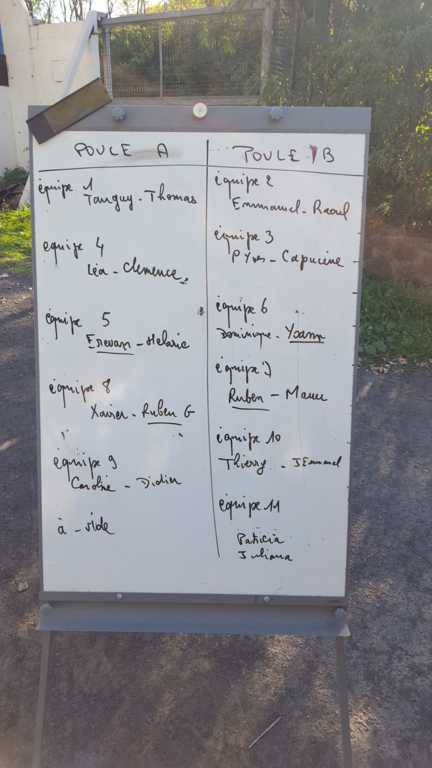 POULE A
équipe 1
Tanguy - Thomas
équipe 4
Léa - Clemence
équipe 5
Erevan - Melanie
équipe 8
Xavier - Ruben G
équipe 9
Caroline - Didier
à - vide
POULE B
équipe 2
Emmanuel - Raoul
équipe 3
P Yves - Capucine
équipe 6
Dominique - Yoann
équipe 7
Ruben - Manu
équipe 10
Thierry - JEmmanuel
équipe 11
Patricia
Juliana